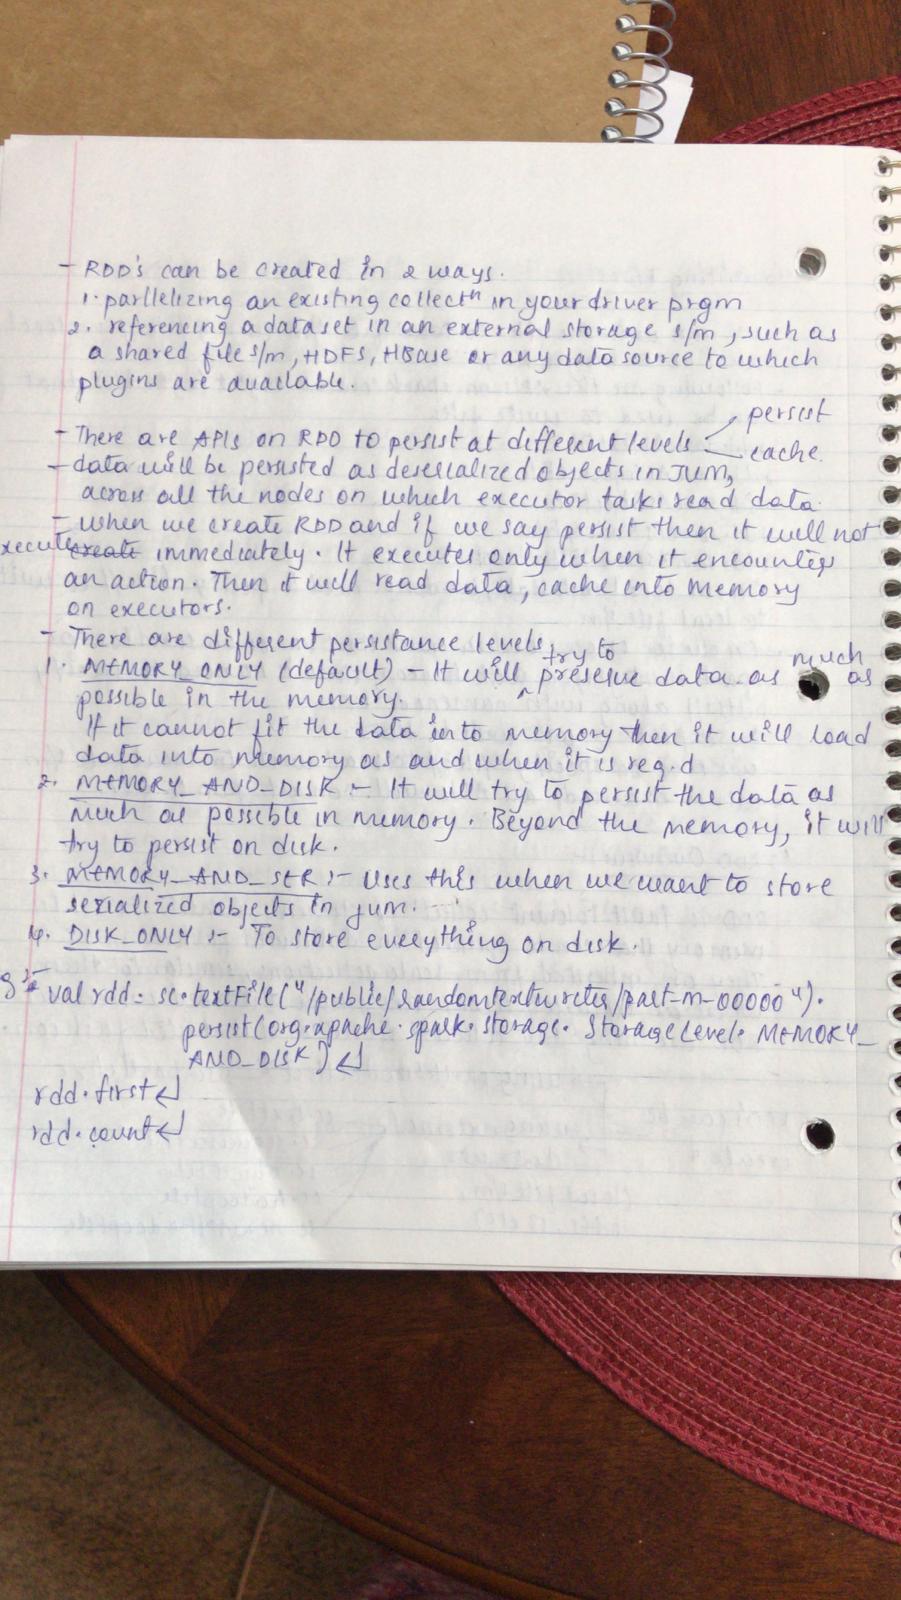 - RDD's can be created in 2 ways.
1. parllelizing an existing collectn in your driver prgm
2. referencing a dataset in an external storage s/m, such as
a shared file s/m, HDFS, HBase or any data source to which
plugins are available.
- There are APIs on RDD to persist at different levels persist
cache
- data will be persisted as deserialized objects in JVM,
across all the nodes on which executor tasks read data.
- when we create RDD and if we say persist then it will not
execute create immediately. It executes only when it encounters
an action. Then it will read data, cache into memory
on executors.
- There are different persistance levels
1. MEMORY_ONLY (default) - It will try to preserve data as much as
possible in the memory.
If it cannot fit the data into memory then it will load
data into memory as and when it is reqd
2. MEMORY_AND_DISK :- It will try to persist the data as
much as possible in memory. Beyond the memory, it will
try to persist on disk.
3. MEMORY_AND_SER :- Uses this when we want to store
serialized objects in jvm.
4. DISK_ONLY :- To store everything on disk.
val rdd = sc.textFile("/public/randomtextwriter/part-m-00000").
persist(org.apache.spark.storage.StorageLevel.MEMORY_
AND_DISK) ↵
rdd.first ↵
rdd.count ↵